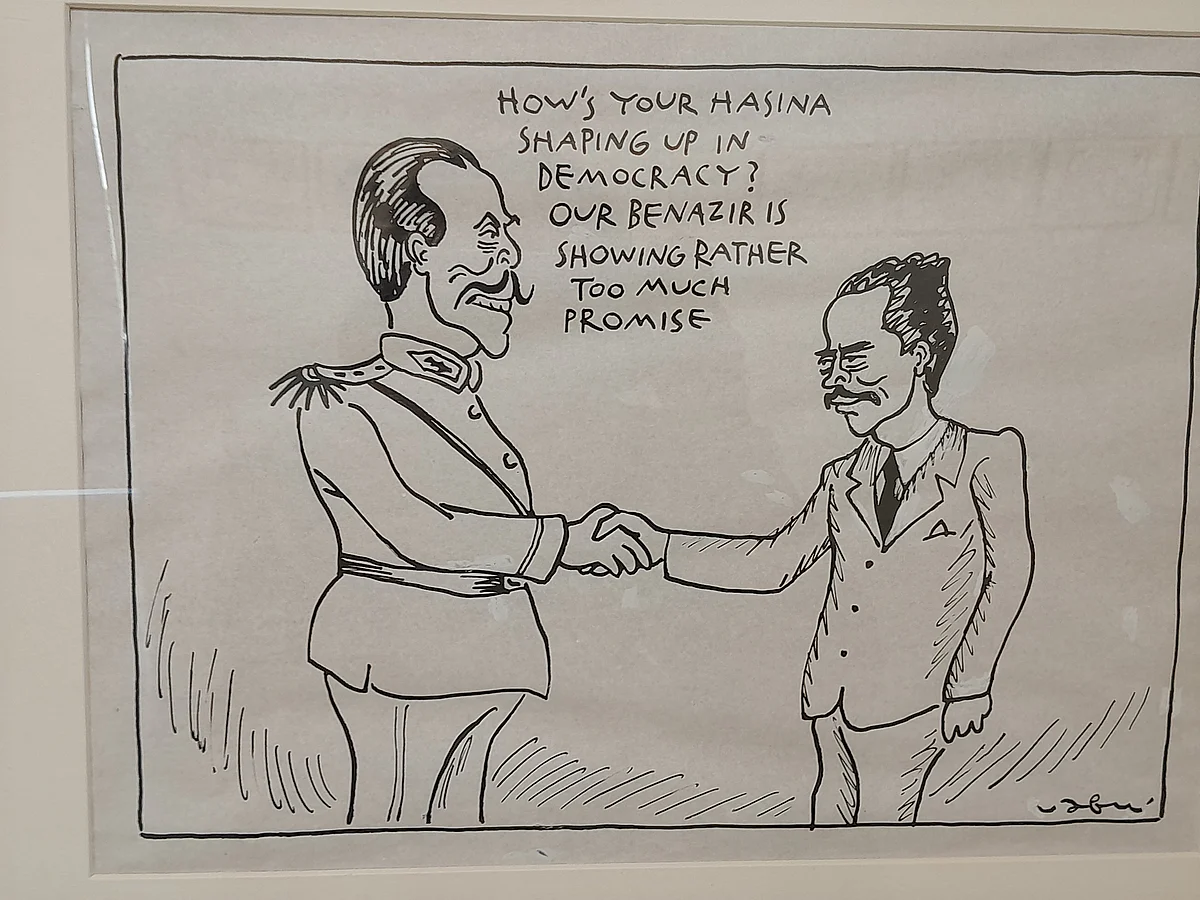 HOW'S YOUR HASINA
SHAPING UP IN
DEMOCRACY?
OUR BENAZIR IS
SHOWING RATHER
TOO MUCH
PROMISE